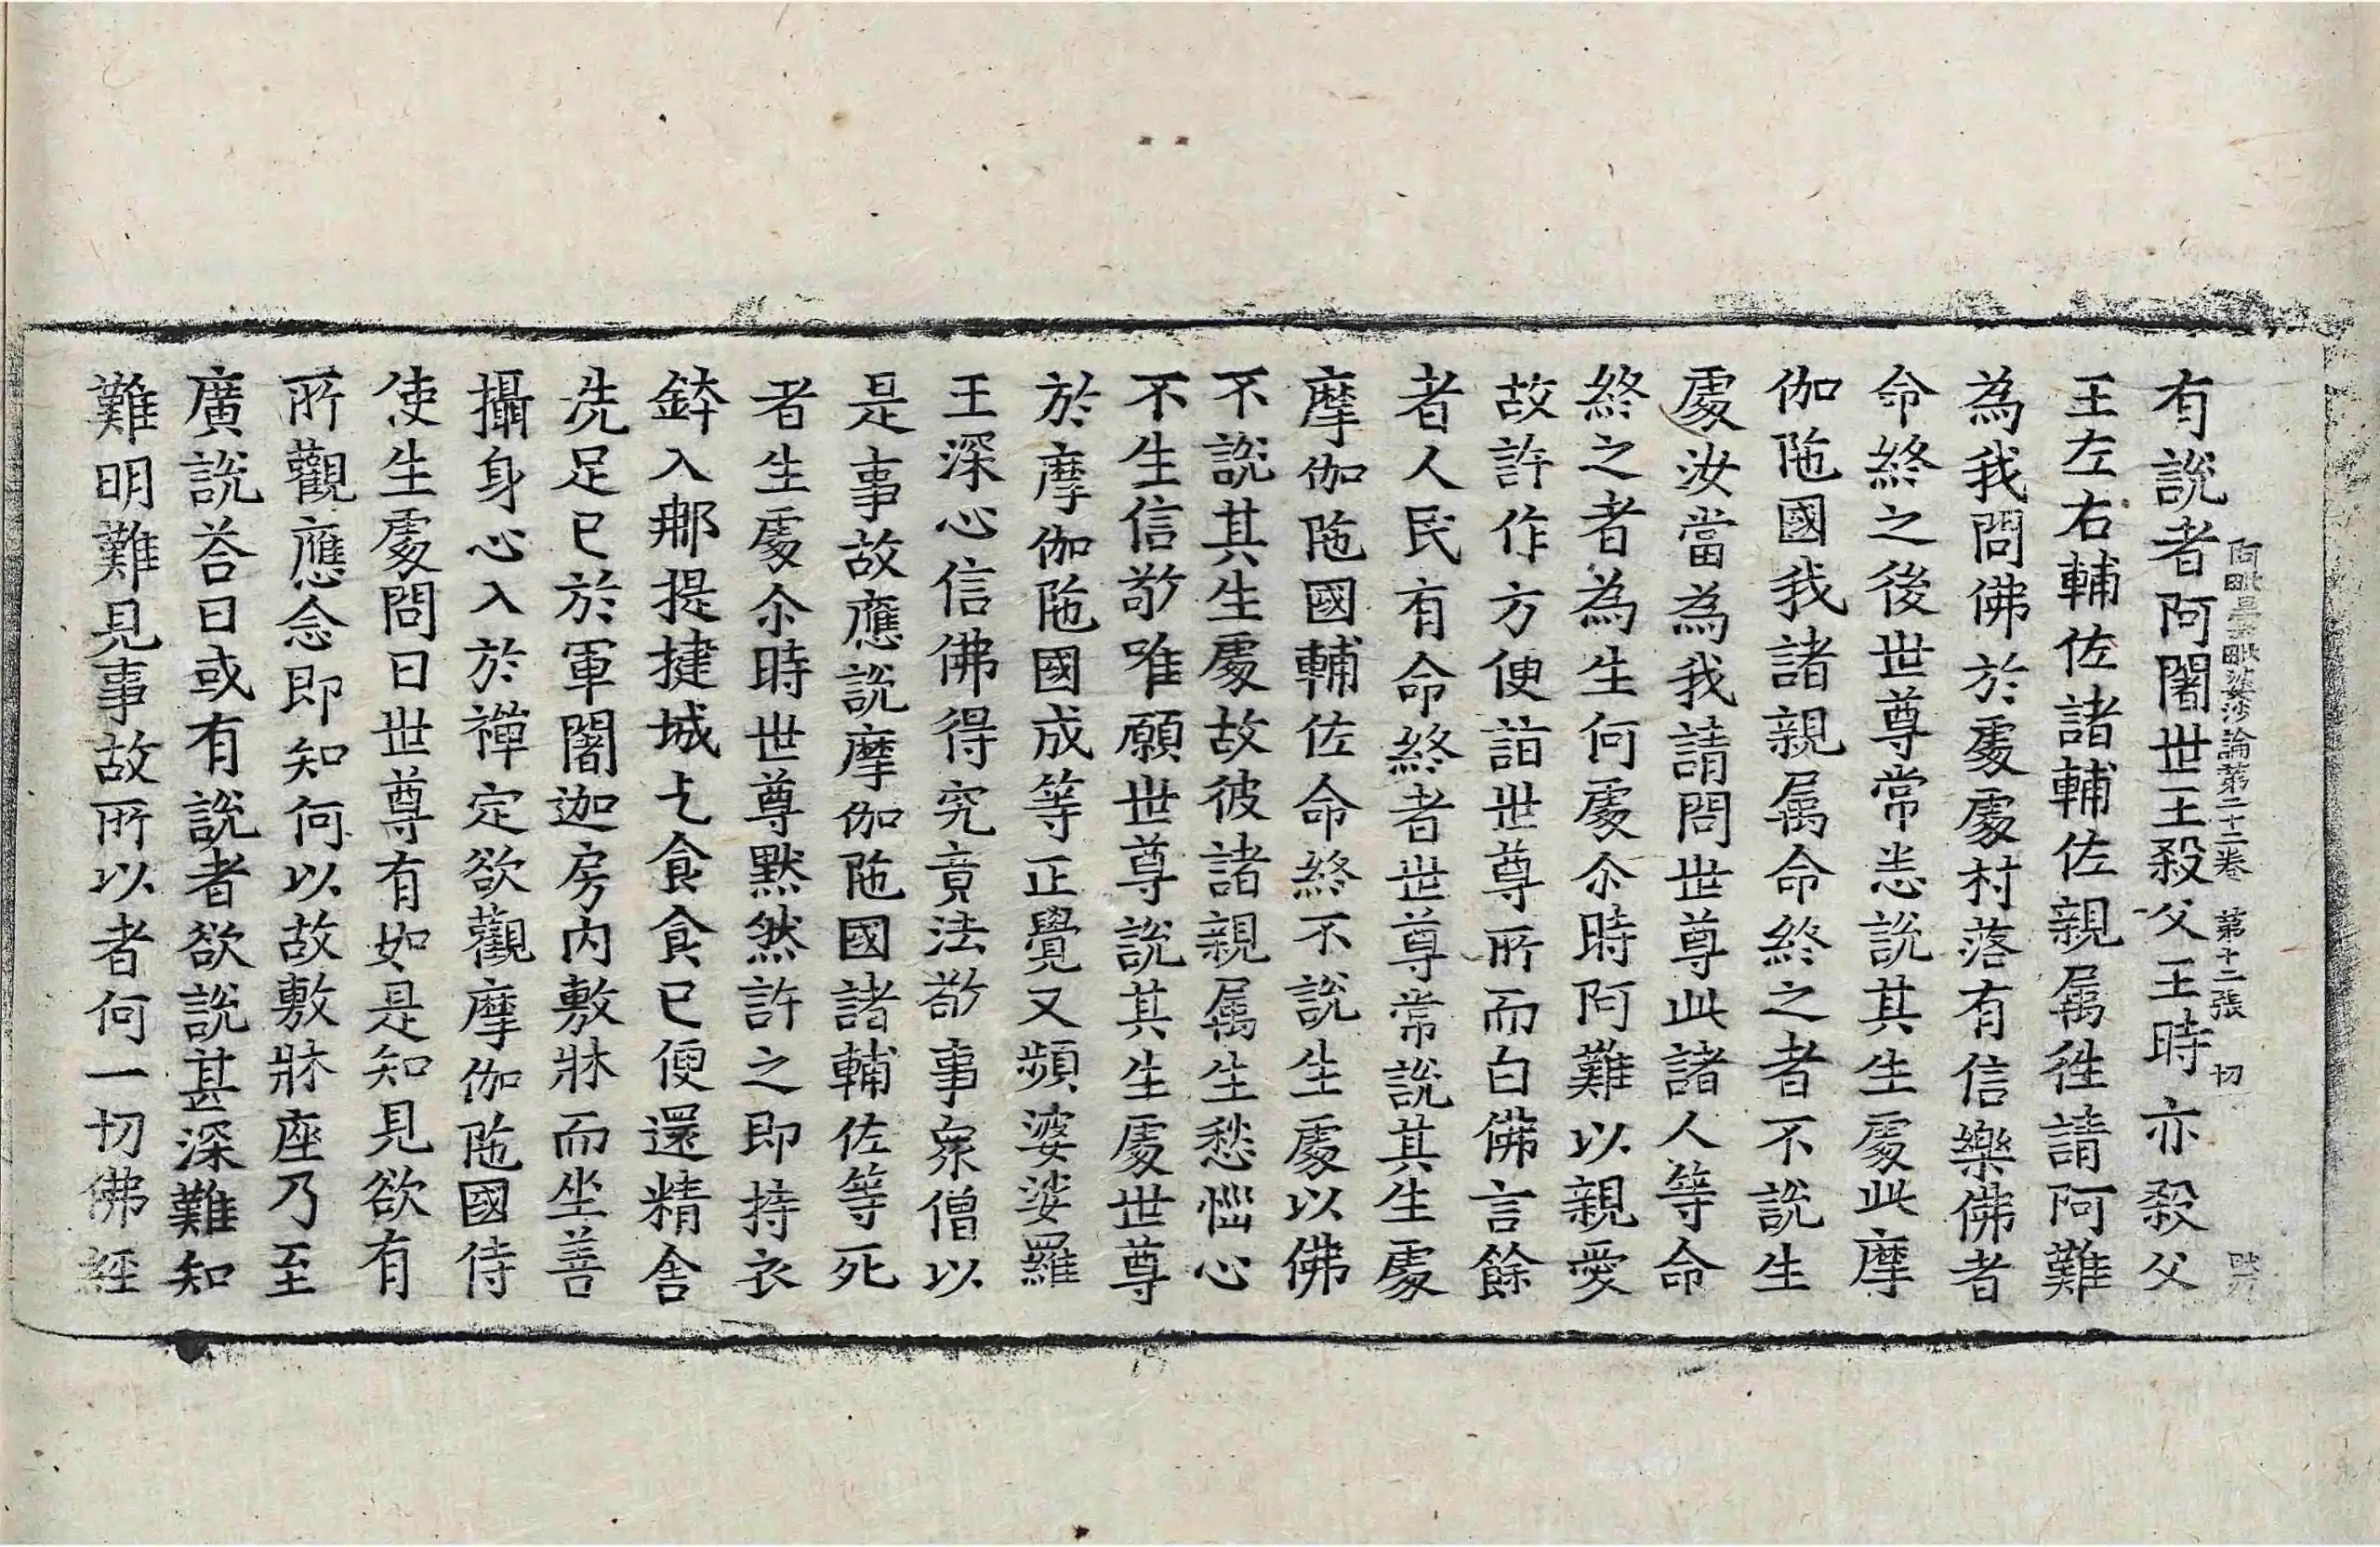 有說者阿闍世王殺父王時亦殺父
阿毗曇毗婆沙論第二十二卷　第十二張　切
王左右輔佐諸輔佐親属徃請阿難
為我問佛於處處村落有信樂佛者
命終之後世尊常悉說其生處此摩
伽陁國我諸親属命終之者不說生
處汝當為我請問世尊此諸人等命
終之者為生何處尒時阿難以親愛
故許作方便詣世尊所而白佛言餘
者人民有命終者世尊常說其生處
摩伽陁國輔佐命終不說生處以佛
不說其生處故彼諸親属生愁惱心
不生信敬唯願世尊說其生處世尊
於摩伽陁國成等正覺又頻婆娑羅
王深心信佛得究竟法敬事衆僧以
是事故應說摩伽陁國諸輔佐等死
者生處尒時世尊默然許之即持衣
鉢入那提揵城乞食食已便還精舍
洗足已於軍闍迦房内敷牀而坐善
攝身心入於禪定欲觀摩伽陁國侍
使生處問曰世尊有如是知見欲有
所觀應念即知何以故敷牀座乃至
廣說荅曰或有說者欲說甚深難知
難明難見事故所以者何一切佛経